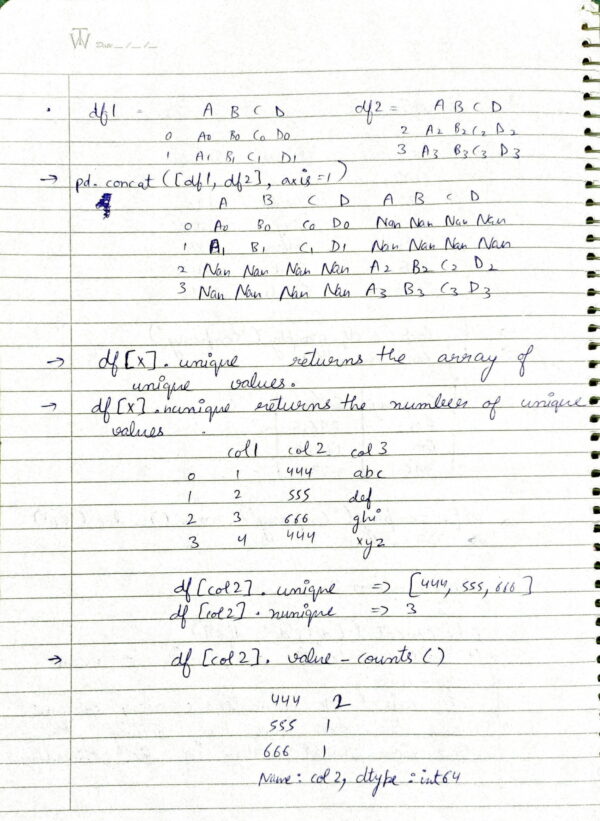 Date _ / _ / _
• df1 = A B C D df2 = A B C D
0 A0 B0 C0 D0 2 A2 B2 C2 D2
1 A1 B1 C1 D1 3 A3 B3 C3 D3
→ pd. concat ([df1, df2], axis=1)
A B C D A B C D
0 A0 B0 C0 D0 Nan Nan Nan Nan
1 A1 B1 C1 D1 Nan Nan Nan Nan
2 Nan Nan Nan Nan A2 B2 C2 D2
3 Nan Nan Nan Nan A3 B3 C3 D3
→ df[x]. unique returns the array of
unique values.
→ df[x]. nunique returns the number of unique
values .
col1 col2 col3
0 1 444 abc
1 2 555 def
2 3 666 ghi
3 4 444 xyz
df[col2]. unique => [444, 555, 666]
df[col2]. nunique => 3
→ df[col2]. value-counts()
444 2
555 1
666 1
Name: col2, dtype: int64